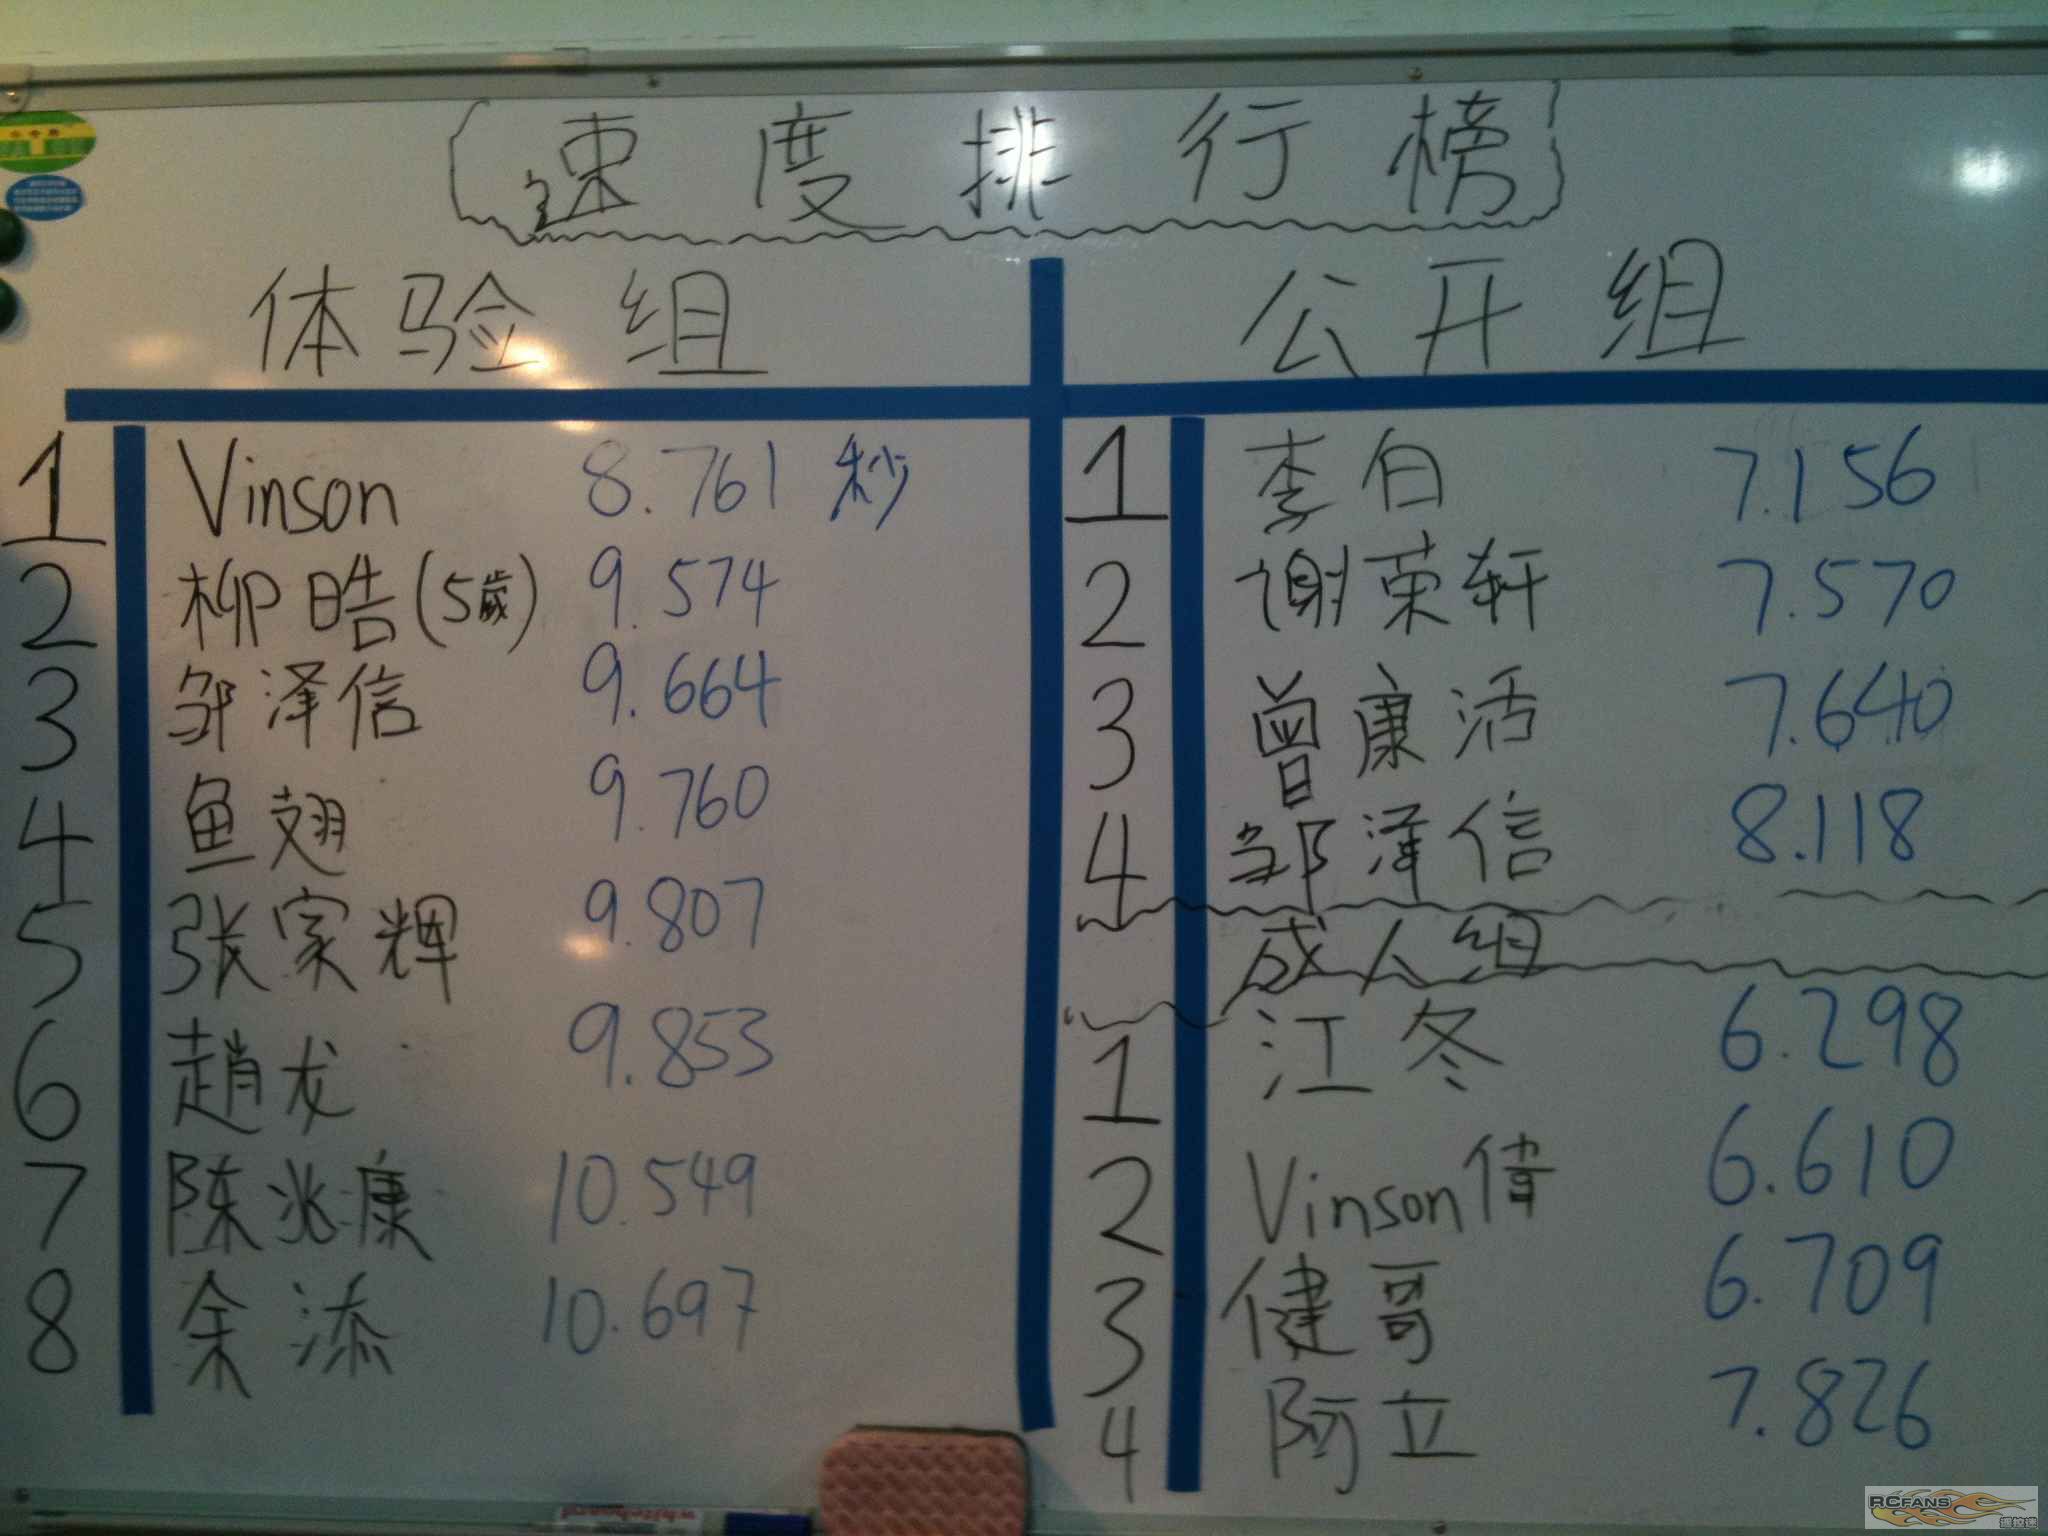 速度排行榜
体验组
1 Vinson 8.761 秒
2 柳皓(5歲) 9.574
3 邹泽信 9.664
4 鱼翅 9.760
5 张家辉 9.807
6 趙龙 9.853
7 陈兆康 10.549
8 余添 10.697
公开组
1 李白 7.156
2 谢荣轩 7.570
3 曾康活 7.640
4 邹泽信 8.118
成人组
1 江冬 6.298
2 Vinson偉 6.610
3 健哥 6.709
4 阿立 7.826
whiteboard
RCFANS
遥控迷